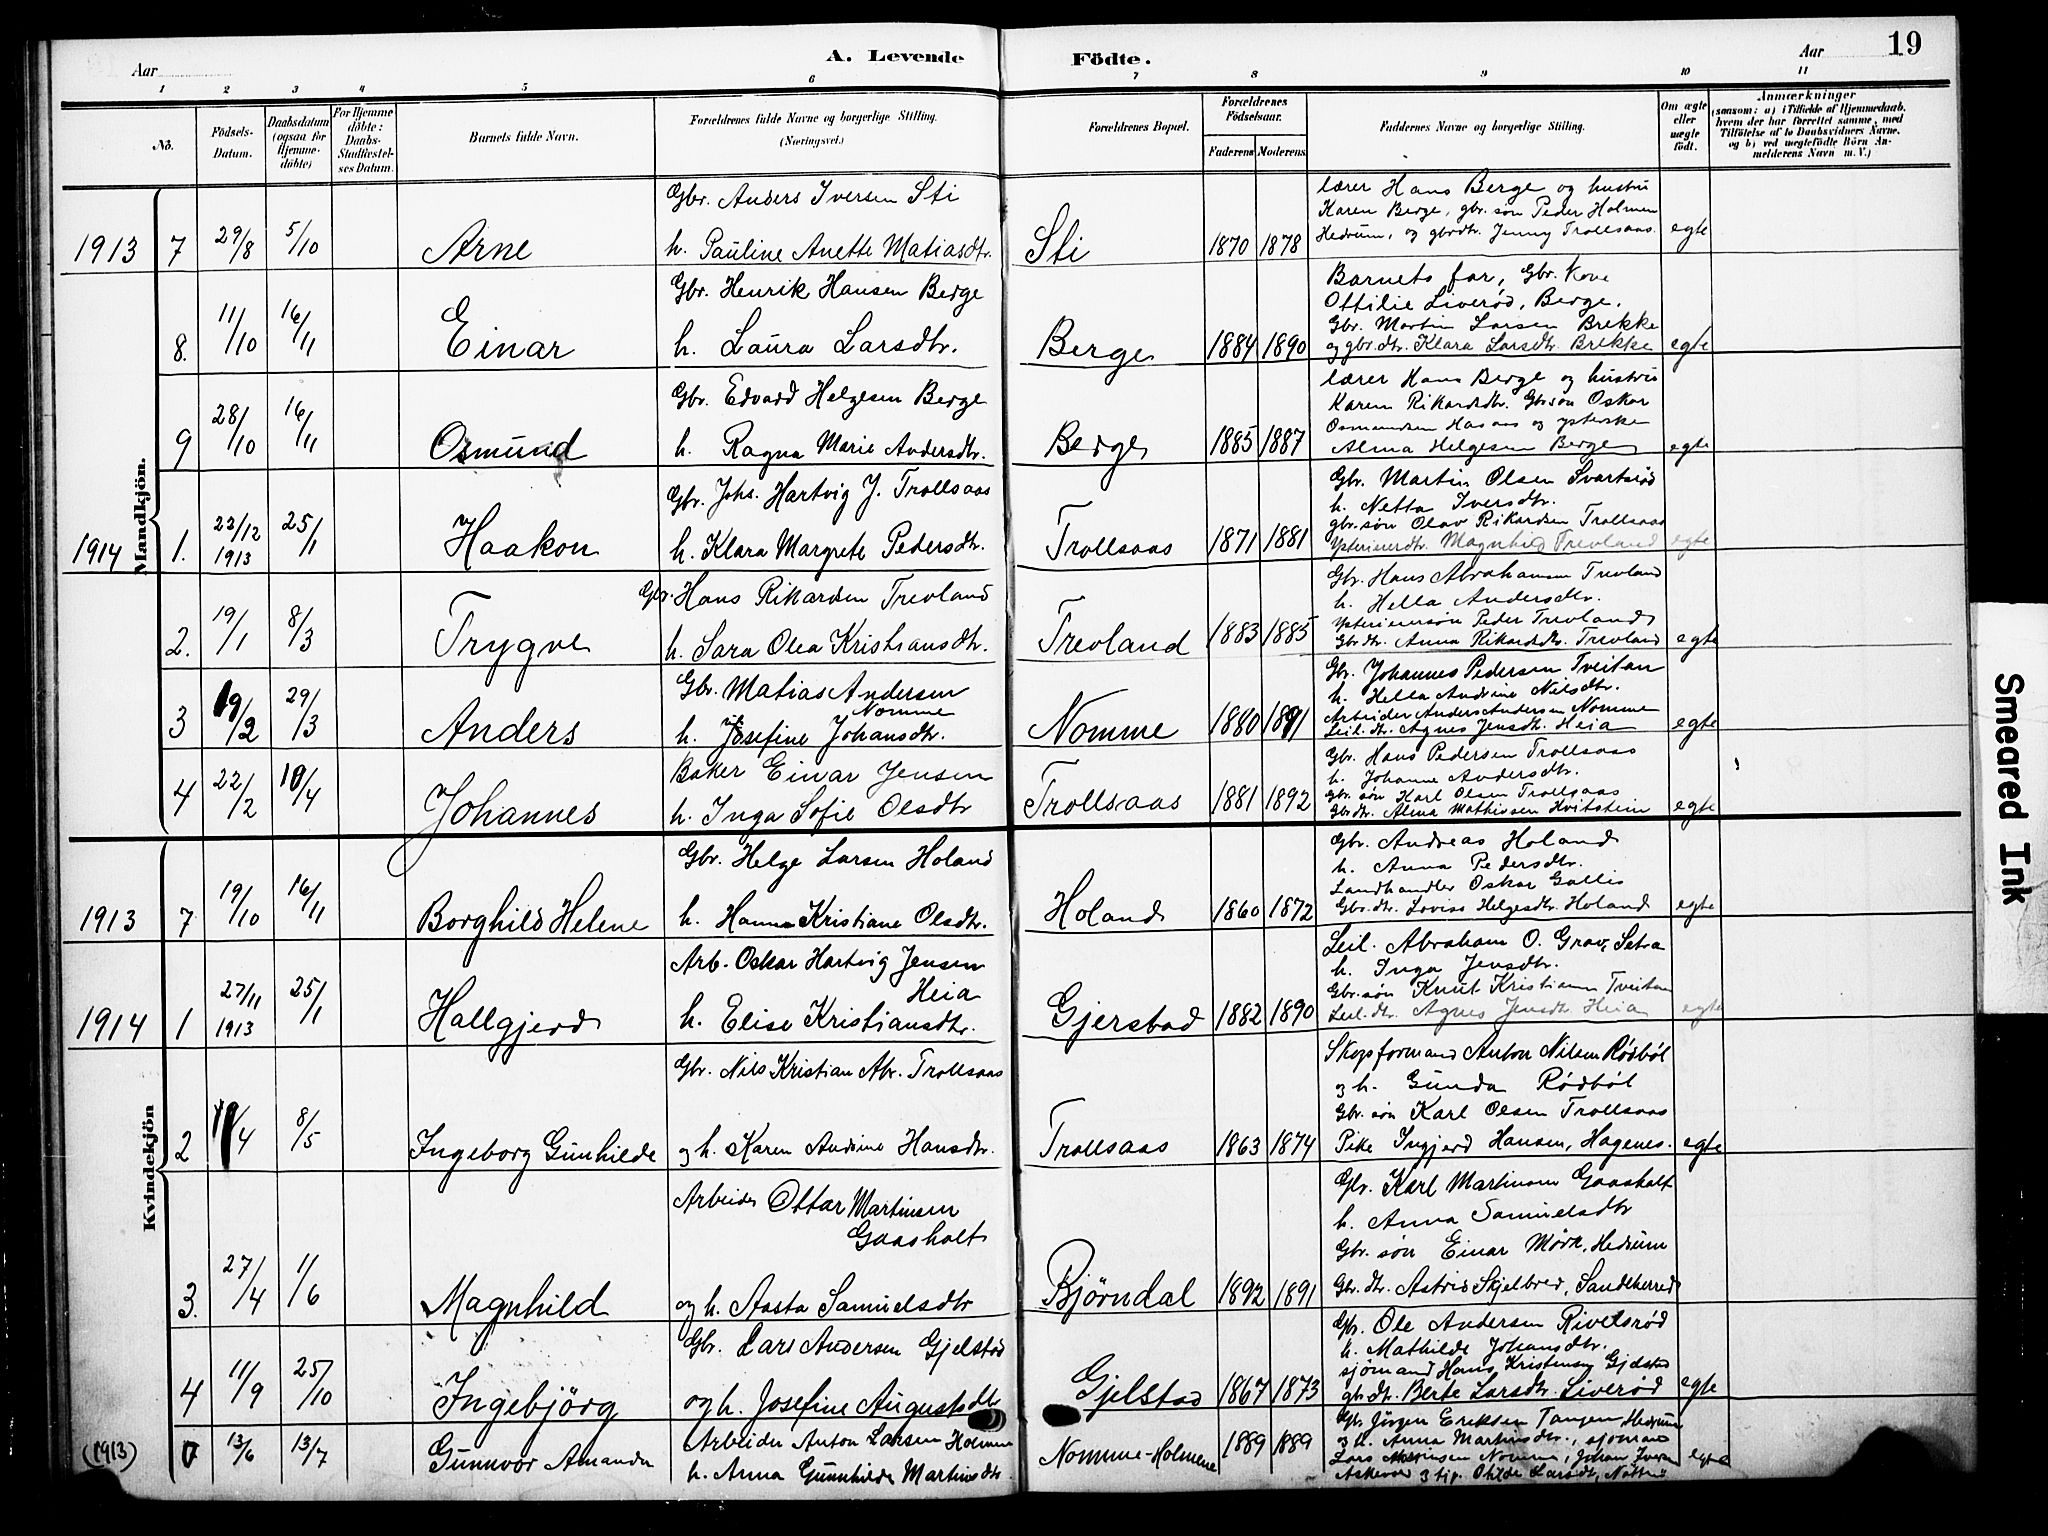 Aar
A. Levende
Födte.
Aar
19
1 2 3 4 5 6 7 8 9 10 11
No.
Födsels-
Datum.
Daabsdatum
(ogsaa for
Hjemme-
döbte)
For Hjemme
döbte:
Daabs-
Stadfæstel-
ses Datum.
Barnets fulde Navn.
Forældrenes fulde Navne og borgerlige Stilling.
(Næringsvei.)
Forældrenes Bopæl.
Forældrenes
Födselsaar.
Faderens
Moderens
Faddernes Navne og borgerlige Stilling.
Om ægte
eller
uægte
födt.
Anmærkninger
(saasom: a) i Tilfælde af Hjemmedaab,
hvem der har forrettet samme, med
Tilföielse af to Daabsvidners Navne,
og b) ved uægtefödte Börn An-
melderens Navn m. V.)
Mandkjön.
1913 7 29/8 5/10 Arne
Gbr. Anders Iversen Sti
h. Pauline Anette Matiasdtr.
Sti 1870 1878
lærer Hans Berge og hustru
Karen Berge, gbr. søn Peder Holmen
Hedrum, og gbrdtr. Jenny Trollsaas.
egte
8. 11/10 16/11 Einar
Gbr. Henrik Hansen Berge
h. Laura Larsdtr.
Berge 1884 1890
Barnets far, Gbr. Kone
Ottilie Liverød, Berge.
Gbr. Martin Larsen Brekke
og gbr.dtr. Klara Larsdtr. Brekke
egte
9 28/10 16/11 Osmund
Gbr. Edvard Helgesen Berge
h. Ragna Marie Andersdtr.
Berge 1885 1887
lærer Hans Berge og hustru
Karen Rikardsdtr. Gbr.søn Oskar
Osmundsen Haaaas og ysterske
Alma Helgesen Berge
egte
1914 1. 23/12 1913 25/1 Haakon
Gbr. Johs. Hartvig J. Trollsaas
h. Klara Margrete Pedersdtr.
Trollsaas 1871 1881
Gbr. Martin Olsen Svartsrød
h. Netta Iversdtr.
gbr. søn Olav Rikardsen Trollsaas
Ysterierdtr. Magnhild Trevland
egte
2. 19/1 8/3 Trygve
Gbr. Hans Rikardsen Trevland
h. Sara Olea Kristiansdtr.
Trevland 1883 1885
Gbr. Hans Abrahamsen Trevland
h. Hella Andersdtr.
Ysteriersøn Peder Trevland
Gbr.dtr. Anna Rikardsdtr. Trevland
egte
3 19/2 29/3 Anders
Gbr. Matias Andersen
Nomme
h. Josefine Johansdtr.
Nomme 1880 1891
Gbr. Johannes Pedersen Tveitan
h. Hella Andrine Nilsdtr.
Arbeider Anders Andersen Nomme
Leil. dtr. Agnes Jensdtr. Heia
egte
4 22/2 10/4 Johannes
Baker Einar Jensen
h. Inga Sofie Olsdtr
Trollsaas 1881 1892
Gbr. Hans Pedersen Trollsaas
h. Johanne Andersdtr.
Gbr. søn Karl Olsen Trollsaas
Gbr.dtr. Alma Mathissen Kvitstein
egte
Kvindekjön
1913 7 19/10 16/11 Borghild Helene
Gbr. Helge Larsen Holand
h. Hanna Kristiane Olsdtr.
Holand 1860 1872
Gbr. Andreas Holand
h. Anna Pedersdtr.
Landhandler Oskar Gallis
Gbr.dtr. Lovise Helgesdtr. Holand
egte
1914 1 27/11 1913 25/1 Hallgjerd
Arb. Oskar Hartvig Jensen
Heia
h. Elise Kristiansdtr.
Gjerstad 1882 1890
Leil. Abraham O. Grav, Setra
h. Inga Jensdtr.
Gbr. søn Knut Kristiansen Tveitan
Leil. dtr. Agnes Jensdtr. Heia
egte
2 19/4 8/5 Ingeborg Gunhilde
Gbr. Nils Kristian Abr. Trollsaas
og h. Karen Andrine Hansdtr.
Trollsaas 1863 1874
Skogsformand Anton Nilsen Rødbøl
og h. Gunda Rødbøl
Gbr. søn Karl Olsen Trollsaas
Pike Ingjerd Hansen, Hagenes.
egte
3. 27/4 1/6 Magnhild
Arbeider Ottar Martinsen
Gaasholt
og h. Aasta Samuelsdtr
Bjørndal 1892 1891
Gbr. Karl Martinsen Gaasholt
h. Anna Samuelsdtr
Gbr. søn Einar Mørk, Hedrum
Gbr. dtr. Astrid Skjelbred, Sandeherred
4 11/9 25/10 Ingebjörg
Gbr. Lars Andersen Gjelstad
og h. Josefine Augustsdtr
Gjelstad 1867 1873
Gbr. Ole Andersen Rivelsrød
h. Mathilde Johansdtr.
sjömand Hans Kristensen Gjelstad
gbr.dtr. Berte Larsdtr. Liverød
egte
(1913) 13/6 13/7 Gunnvor Amanda
Arbeider Anton Larsen Holmene
h. Anna Gunnhilde Martinsdtr.
Nomme-Holmene 1889 1889
Gbr Jørgen Eriksen Tangen Hedrum
og h. Anna Martinsdtr., sjömand
Lars Nomme, Johan Iversen
Askevoe 3 tjp. Othilde Larsdtr,
egte
Smeared Ink